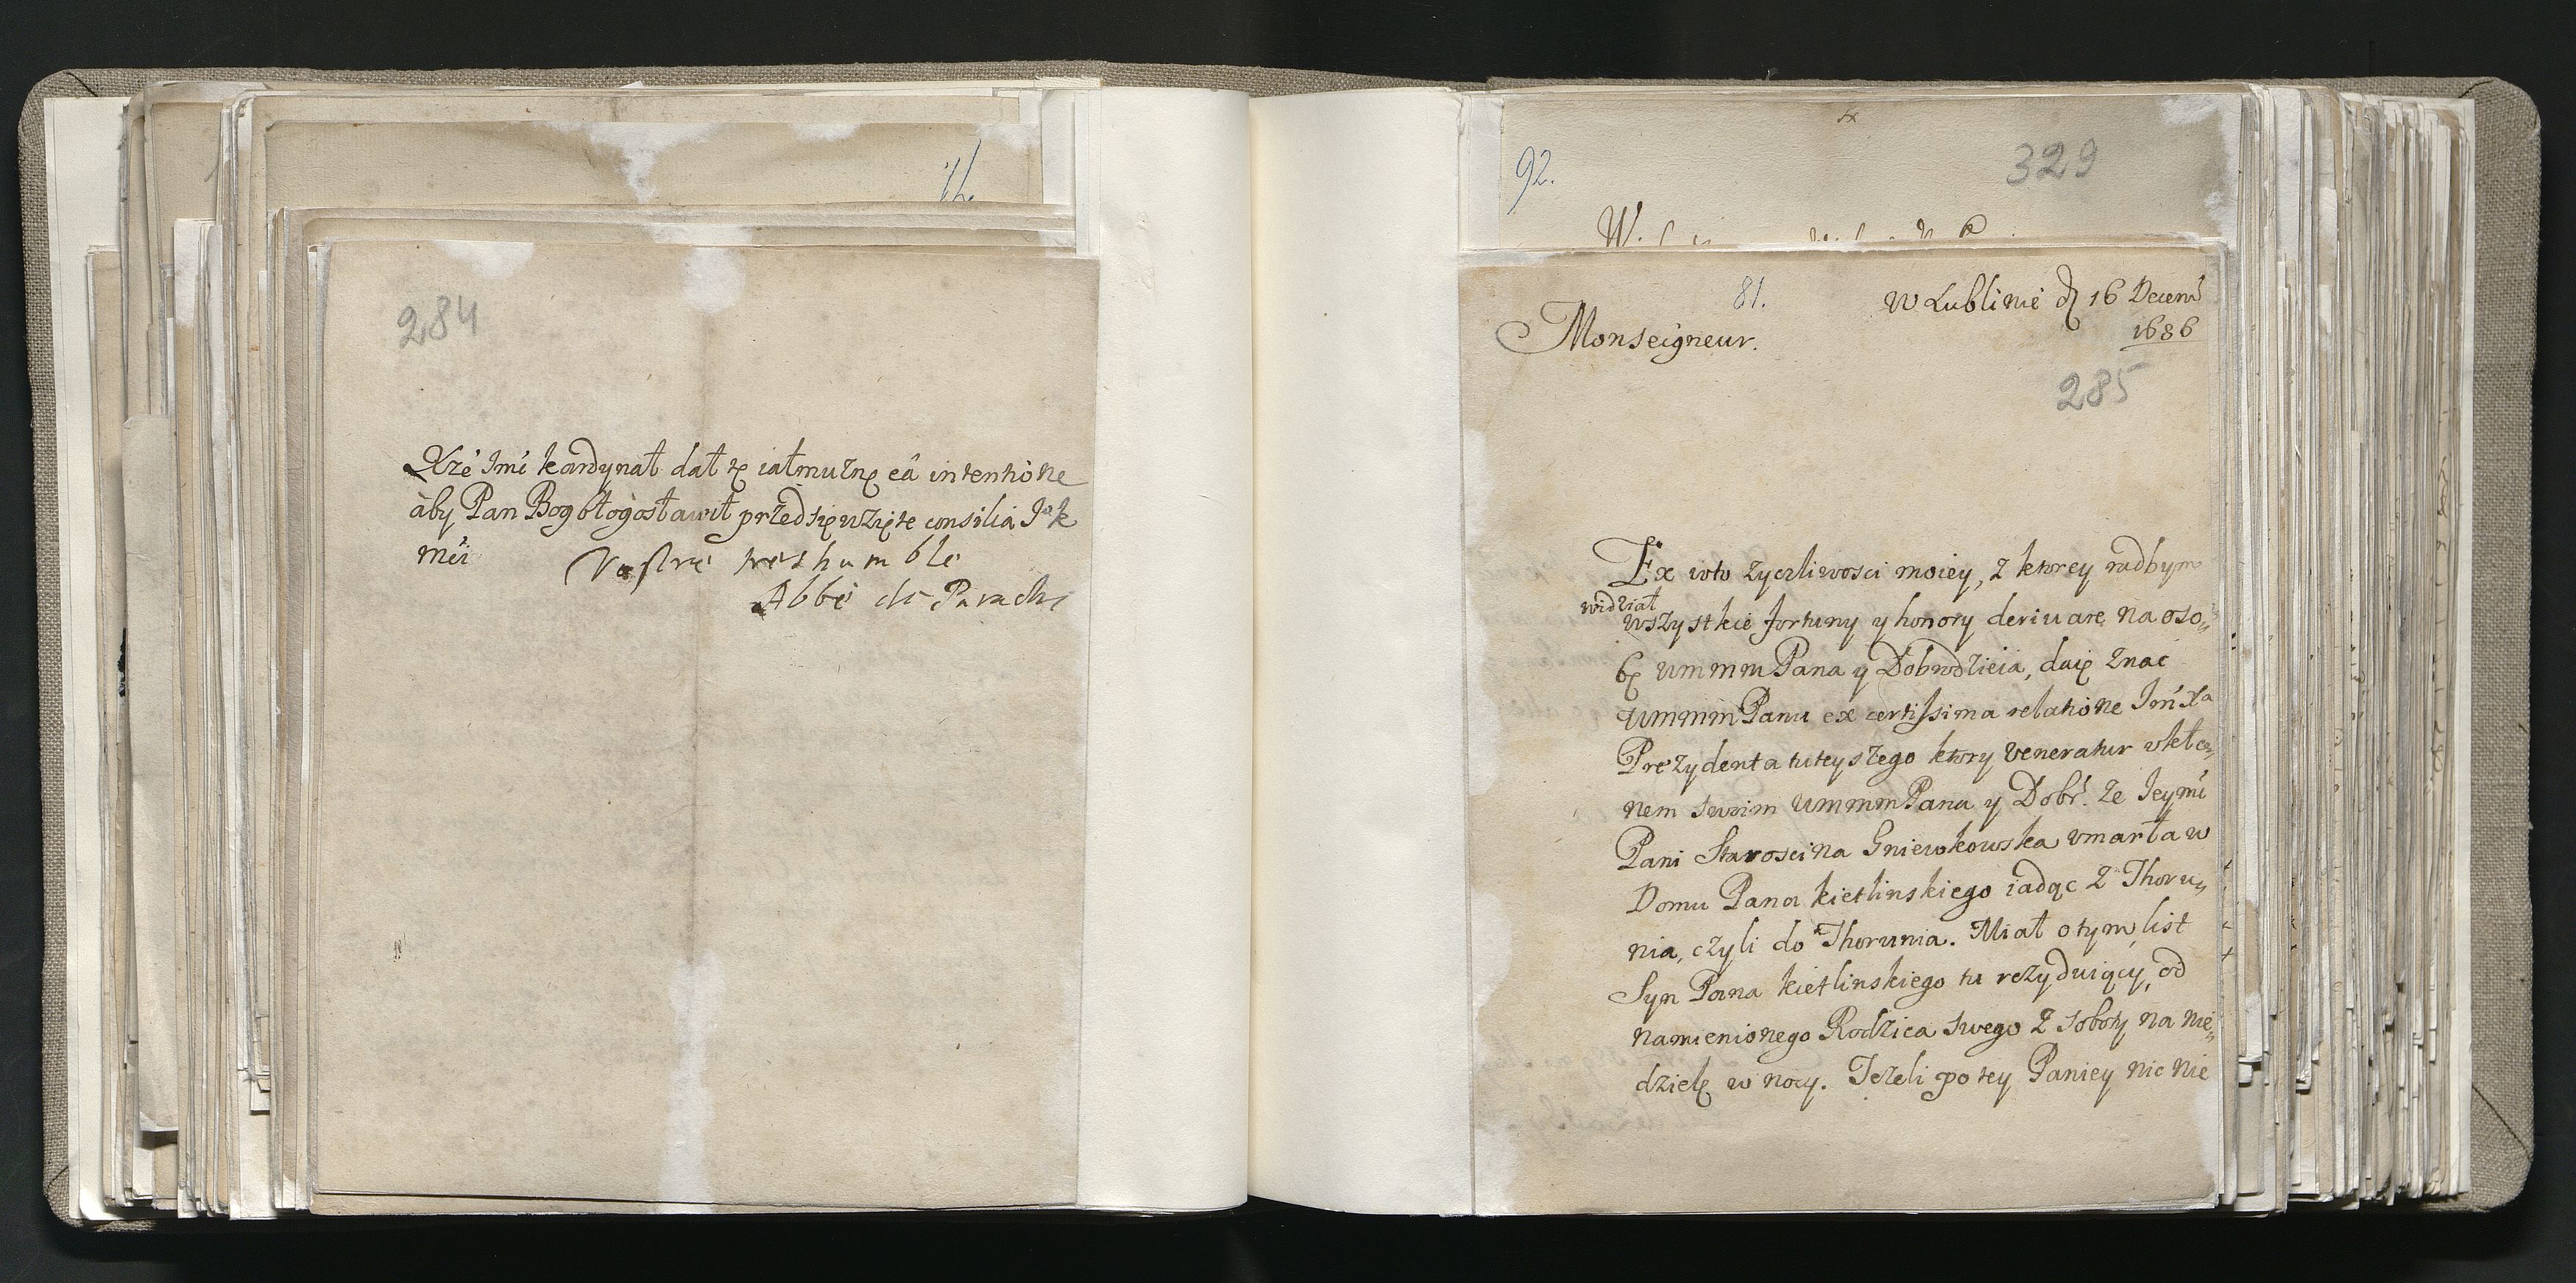 284
Xże Jmć kardynał dał tę iałmużnę eâ intentione
aby Pan Bog błogosławił przedsięwzięte consilia JK
mći
Vostre tres humble
Abbé de Paradis
92.
329
81.
W Lublinie d 16 Decemb
1686
Monseigneur.
285
Ex voto zyczliwosci moiey, z ktorey radbym
widział
wszystkie fortuny y honory derivare na oso„
bę UmmmPana y Dobrodzieia, daię znac
UmmmPanu ex certissima relatione Jmć Xa
Prezydenta tuteyszego ktory veneratur vkło„
nem swoim UmmmPana y Dobr. że Jeymć
Pani Starościna Gniewkowska vmarła w
Domu Pana kietlinskiego iadąc z Thoru„
nia, czyli do Thorunia. Miał o tym list
Syn Pana kietlinskiego tu rezyduiący, od
namienionego Rodzica swego z soboty na nie„
dzielę w nocy. Jeżeli po tey Paniey nic nie